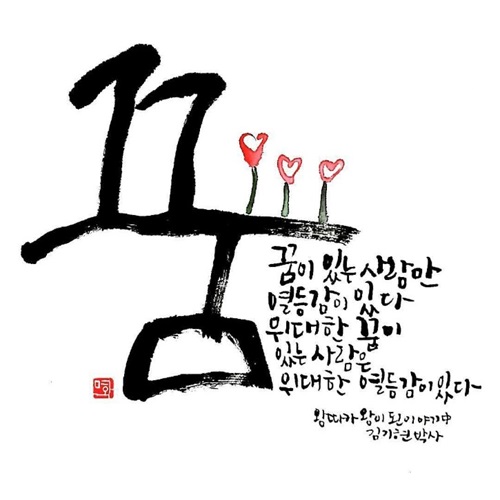 꿈
꿈이 있는 사람만
열등감이 있다
위대한 꿈이
있는 사람은
위대한 열등감이 있다
왕따가 왕이 된 이야기中
김기현 박사